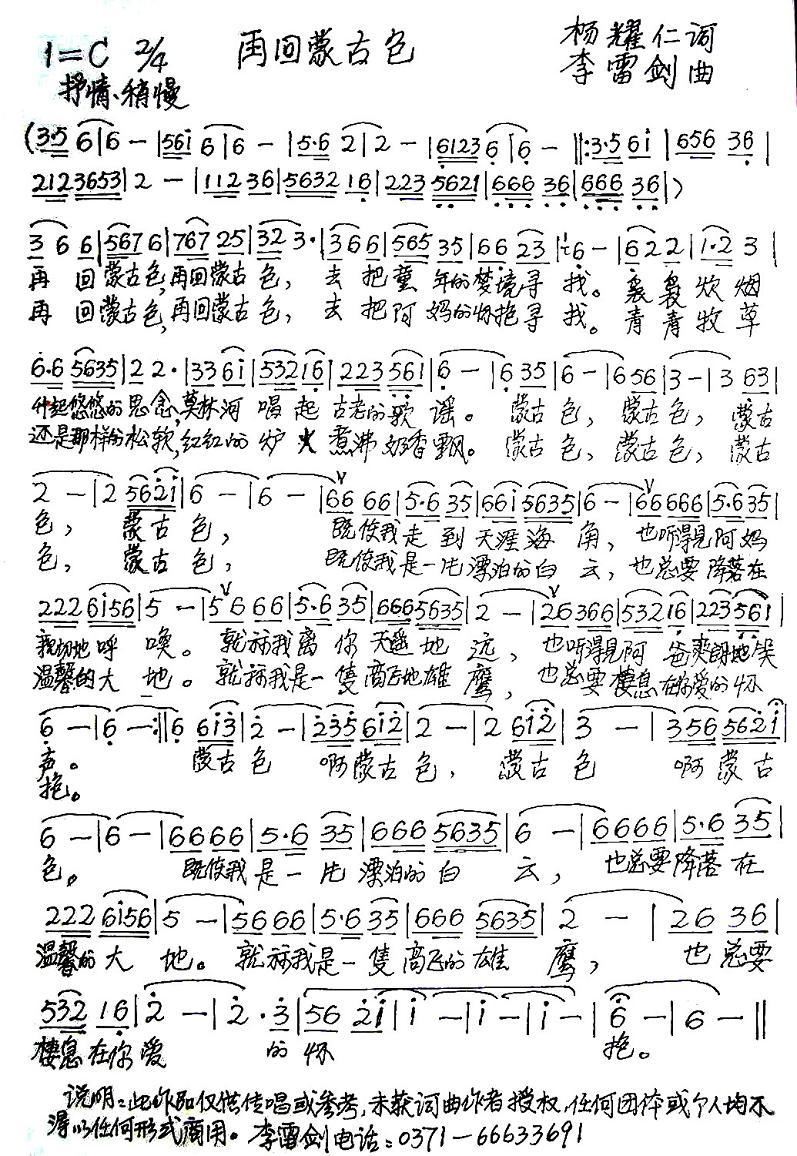 1=C 2/4 再回蒙古包 杨耀仁词
抒情、稍慢 李雷剑曲
(3·5 6|6 — |561̇ 6|6 — |5·6 2|2 — |6123 6|6 — ‖:3·5 61̇|656 36|
2123653|2 — |112 36|5632 16|223 5621|666 36|666 36|)
3 6 6|567 6|767 25|32 3·|366|565 35|66 23|6 — |622|1·2 3|
再 回蒙古包,再回蒙古包, 去把童年的梦境寻找。袅袅炊烟
再 回蒙古包,再回蒙古包, 去把阿妈的怀抱寻找。青青牧草
6·6 5635|2 2·|33 61̇|532 16|223 561|6 — |6 35|6 — |6 56|3 — |3 63|
升起悠悠的思念,莫林河唱起古老的歌谣。蒙古包,蒙古包,蒙古
还是那样的松软,红红的炉火煮沸奶香飘。蒙古包,蒙古包,蒙古
2 — |2 562̇1̇|6 — |6 — |66 66|5·6 35|661̇ 5635|6 — |66666|5·6 35|
包, 蒙古包, 既使我走到天涯海角,也听得见阿妈
包, 蒙古包, 既使我是一片漂泊的白云,也总要降落在
222 61̇56|5 — |56 66|5·6 35|666 5635|2 — |26 366|532 16|223 561|
亲切地呼唤。就算我离你天遥地远,也听得见阿爸爽朗地笑
温馨的大地。就算我是一隻高飞地雄鹰,也总要棲息在你爱的怀
6 — |6 — :‖6 61̇3̇|2̇ — |2̇3̇5 61̇2̇|2 — |2 61̇2̇|3 — |356 562̇1̇|
声。 蒙古包 啊蒙古包,蒙古包 啊蒙古
抱。
6 — |6 — |6666|5·6 35|666 5635|6 — |6666|5·6 35|
包。 既使我是一片漂泊的白云,也总要降落在
222 61̇56|5 — |5666|5·6 35|666 5635|2 — |26 36|
温馨的大地。就算我是一隻高飞的雄鹰,也总要
532 16|2̇ — |2̇·3̇|56 2̇1̇|1̇ — |1̇ — |1̇ — |6 — |6 — ‖
棲息在你爱的怀抱。
说明:此作品仅供传唱或参考,未获词曲作者授权,任何团体或个人均不
得以任何形式商用。李雷剑电话:0371—66633691